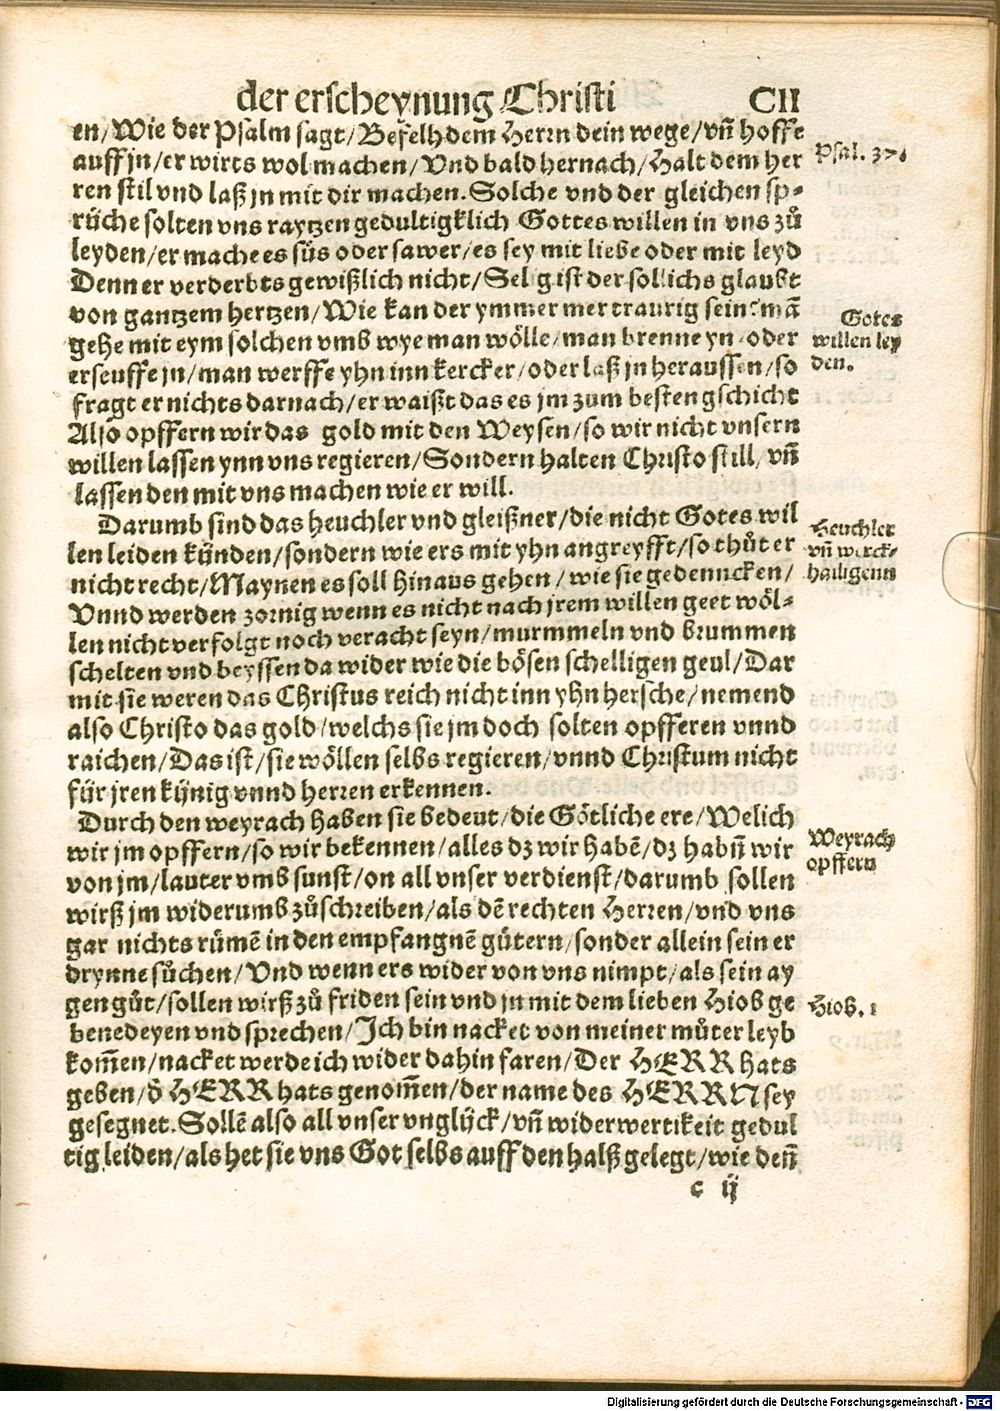 der erscheynung Christi CII
en/Wie der Psalm sagt/Befelh dem Herrn dein wege/vñ hoffe
auff jn/er wirts wol machen/Vnd bald hernach/Halt dem her
ren stil vnd laß jn mit dir machen. Solche vnd der gleichen sp⸗
rüche solten vns raytzen gedultigklich Gottes willen in vns zů
leyden/er mache es süs oder sawer/es sey mit liebe oder mit leyd
Denn er verderbts gewißlich nicht/Selig ist der sollichs glaubt
von gantzem hertzen/Wie kan der ymmer mer traurig sein? mā
gehe mit eym solchen vmb wye man wölle/man brenne yn oder
erseuffe jn/man werffe yhn inn kercker/oder laß jn heraussen/so
fragt er nichts darnach/er waißt das es jm zum besten gschicht
Also opffern wir das gold mit den Weysen/so wir nicht vnsern
willen lassen ynn vns regieren/Sondern halten Christo still/vñ
lassen den mit vns machen wie er will.
Darumb sind das heuchler vnd gleißner/die nicht Gotes wil
len leiden künden/sondern wie ers mit yhn angreyfft/so thůt er
nicht recht/Maynen es soll hinaus gehen/wie sie gedenncken/
Vnnd werden zornig wenn es nicht nach jrem willen geet wöl⸗
len nicht verfolgt noch veracht seyn/murmmeln vnd brummen
schelten vnd beyssen da wider wie die bösen schelligen geul/Dar
mit sie weren das Christus reich nicht inn yhn hersche/nemend
also Christo das gold/welchs sie jm doch solten opfferen vnnd
raichen/Das ist/sie wöllen selbs regieren/vnnd Christum nicht
für jren kijnig vnnd herren erkennen.
Durch den weyrach haben sie bedeut/die Götliche ere/Welich
wir jm opffern/so wir bekennen/alles dz wir habē/dz habñ wir
von jm/lauter vmb sunst/on all vnser verdienst/darumb sollen
wirß jm widerumb zůschreiben/als dē rechten Herren/vnd vns
gar nichts rümē in den empfangnē gütern/sonder allein sein er
drynne sůchen/Vnd wenn ers wider von vns nimpt/als sein ay
gen gůt/sollen wirß zů friden sein vnd jn mit dem lieben Hiob ge
benedeyen vnd sprechen/Ich bin nacket von meiner můter leyb
kom̄en/nacket werde ich wider dahin faren/Der HERR hats
geben/d̄ HERR hats genom̄en/der name des HERRN sey
gesegnet. Sollē also all vnser vnglijck/vñ widerwertikeit gedul
tig leiden/als het sie vns Got selbs auff den halß gelegt/wie deñ
c ij
Psal. 37.
Gotes
willen ley
den.
Heuchler
vñ werck⸗
hailigenn
Weyrach
opffern
Hiob. 1
Digitalisierung gefördert durch die Deutsche Forschungsgemeinschaft - DFG